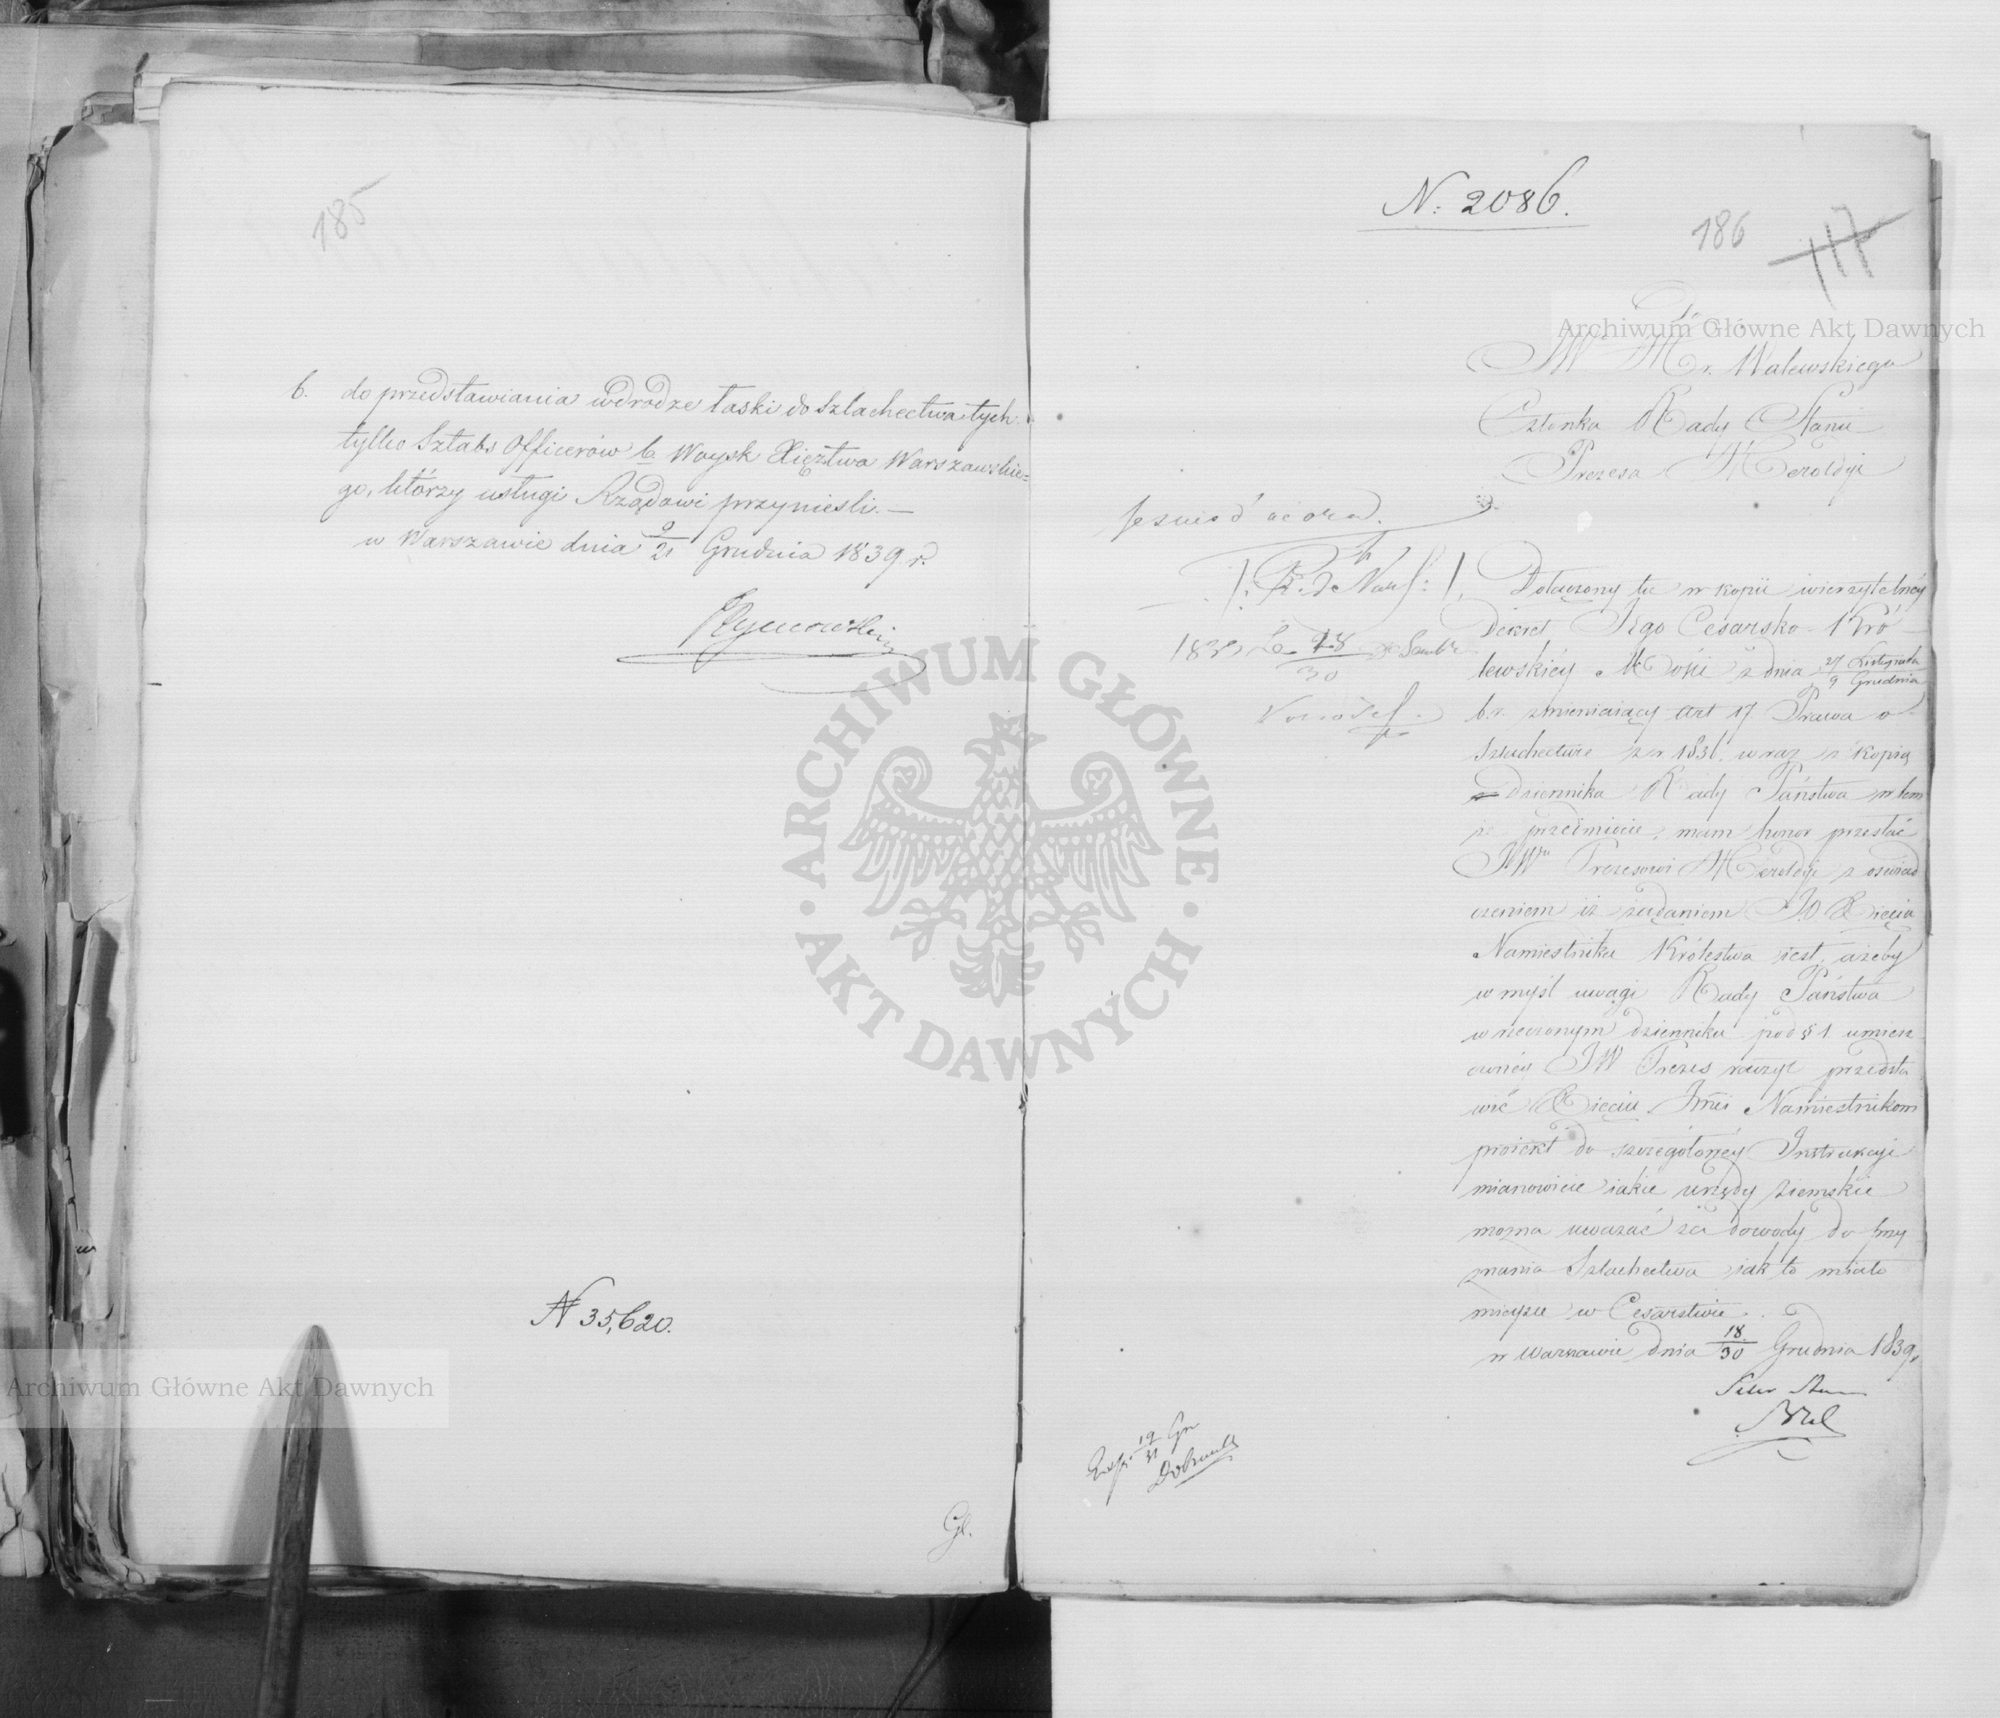 185
6. do przedstawiania w drodze łaski do Szlachectwa tych
tylko Sztabs Officerów b. Woysk Xięztwa Warszawskie=
go, którzy usługi Rządowi przynieśli. —
w Warszawie dnia 9/21 Grudnia 1839 r.
N 35,620.
Gl.
N: 2086.
186
117
Do
JW Hr. Walewskiego
Członka Rady Stanu
Prezesa Heroldyi
je suis d'accord.
1839 Le 18/30
Dołączony tu w kopii wierzytelnéy
Dekret Jego Cesarsko-Kró-
lewskiéy Mości z dnia 27 Listopada / 9 Grudnia
b.r. zmieniaiący Art 17 Prawa o
Szlachectwie z r 1836. wraz z kopią
Dziennika Rady Państwa w tem
że przedmiocie, mam honor przesłać
JWu Prezesowi Heroldyi z oświad
czeniem iż żądaniem J.O Xięcia
Namiestnika Królestwa iest, ażeby
w myśl uwagi Rady Państwa
w rzeczonym dzienniku pod § 1 umiesz
czonéy JW Prezes raczył przedsta
wić Xięciu Jmci Namiestnikowi
proiekt do szczegółowéy Instrukcyi
mianowicie iakie urzędy ziemskie
można uważać za dowody do przy
znania Szlachectwa iak to miało
mieysce w Cesarstwie.
w Warszawie dnia 18/30 Grudnia 1839.
19/31 Gr
ARCHIWUM GŁÓWNE
AKT DAWNYCH
Archiwum Główne Akt Dawnych
Archiwum Główne Akt Dawnych